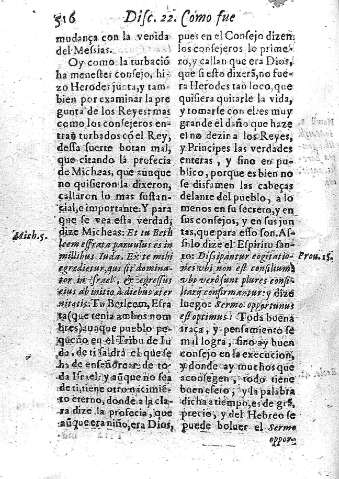 516 Disc. 22. Como fue
mudança con la venida
del Messias.
Oy como la turbaciõ
ha menester consejo, hizo
Herodes junta, y tambien
por examinar la pregunta
de los Reyes: mas
como los consejeros entrã
turbados cõ el Rey,
dessa suerte botan mal,
que citando la profecia
de Micheas, que aunque
no quisieron la dixeron,
callaron lo mas sustancial,
e importante. Y para
que se vea esta verdad,
dize Micheas: Et tu Bethleem
effrata paruulus es in
millibus Iuda. Ex te mihi
egredietur, qui sit dominator
in Israel, & egressus
eius ab initio à diebus æternitatis.
Tu Betleem, Efrata
(que tenia ambos nombres)
aunque pueblo pequeño
en el Tribu de Iuda,
de ti saldrà el que se
ha de enseñorear de toda
Israel: y aũque no sea
de ti, tiene otro nacimiẽto
eterno, donde a la clara
dize la profecia, que
aũque era niño, era Dios,
Mich. 5.
pues en el Consejo dizen
los consejeros lo primero,
y callan que era Dios,
que si esto dixerã, no fuera
Herodes tan loco, que
quisiera quitarle la vida,
y tomarse con el: es muy
grande el daño que haze
el no dezir a los Reyes,
y Principes las verdades
enteras, y sino en publico,
porque es bien no
se disfamen las cabeças
delante del pueblo, a lo
menos en su secreto, y en
sus consejos, y en sus juntas,
que para esso son. Assi
lo dize el Espiritu santo:
Dissipantur cogitationes
vbi non est consilium:
vbi verò sunt plures consiliarij
confirmantur: y dize
luego: Sermo opportunus
est optimus: Toda buena
traça, y pensamiento se
mal logra, sino ay buen
consejo en la execucion,
y donde ay muchos que
aconsegen, todo tiene
bueno esseto; y la palabra
dicha a tiempo, es de grã
precio, y del Hebreo se
puede boluer el Sermo
Prou. 15.
oppor-